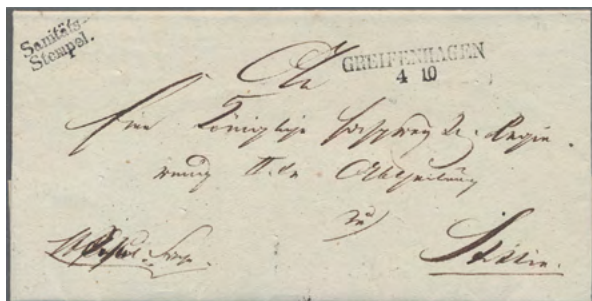 Sanitäts-
Stempel.
GREIFENHAGEN
4 10
An
Eine Königliche Regie-
rung II. Abtheilung
zu
Stettin.